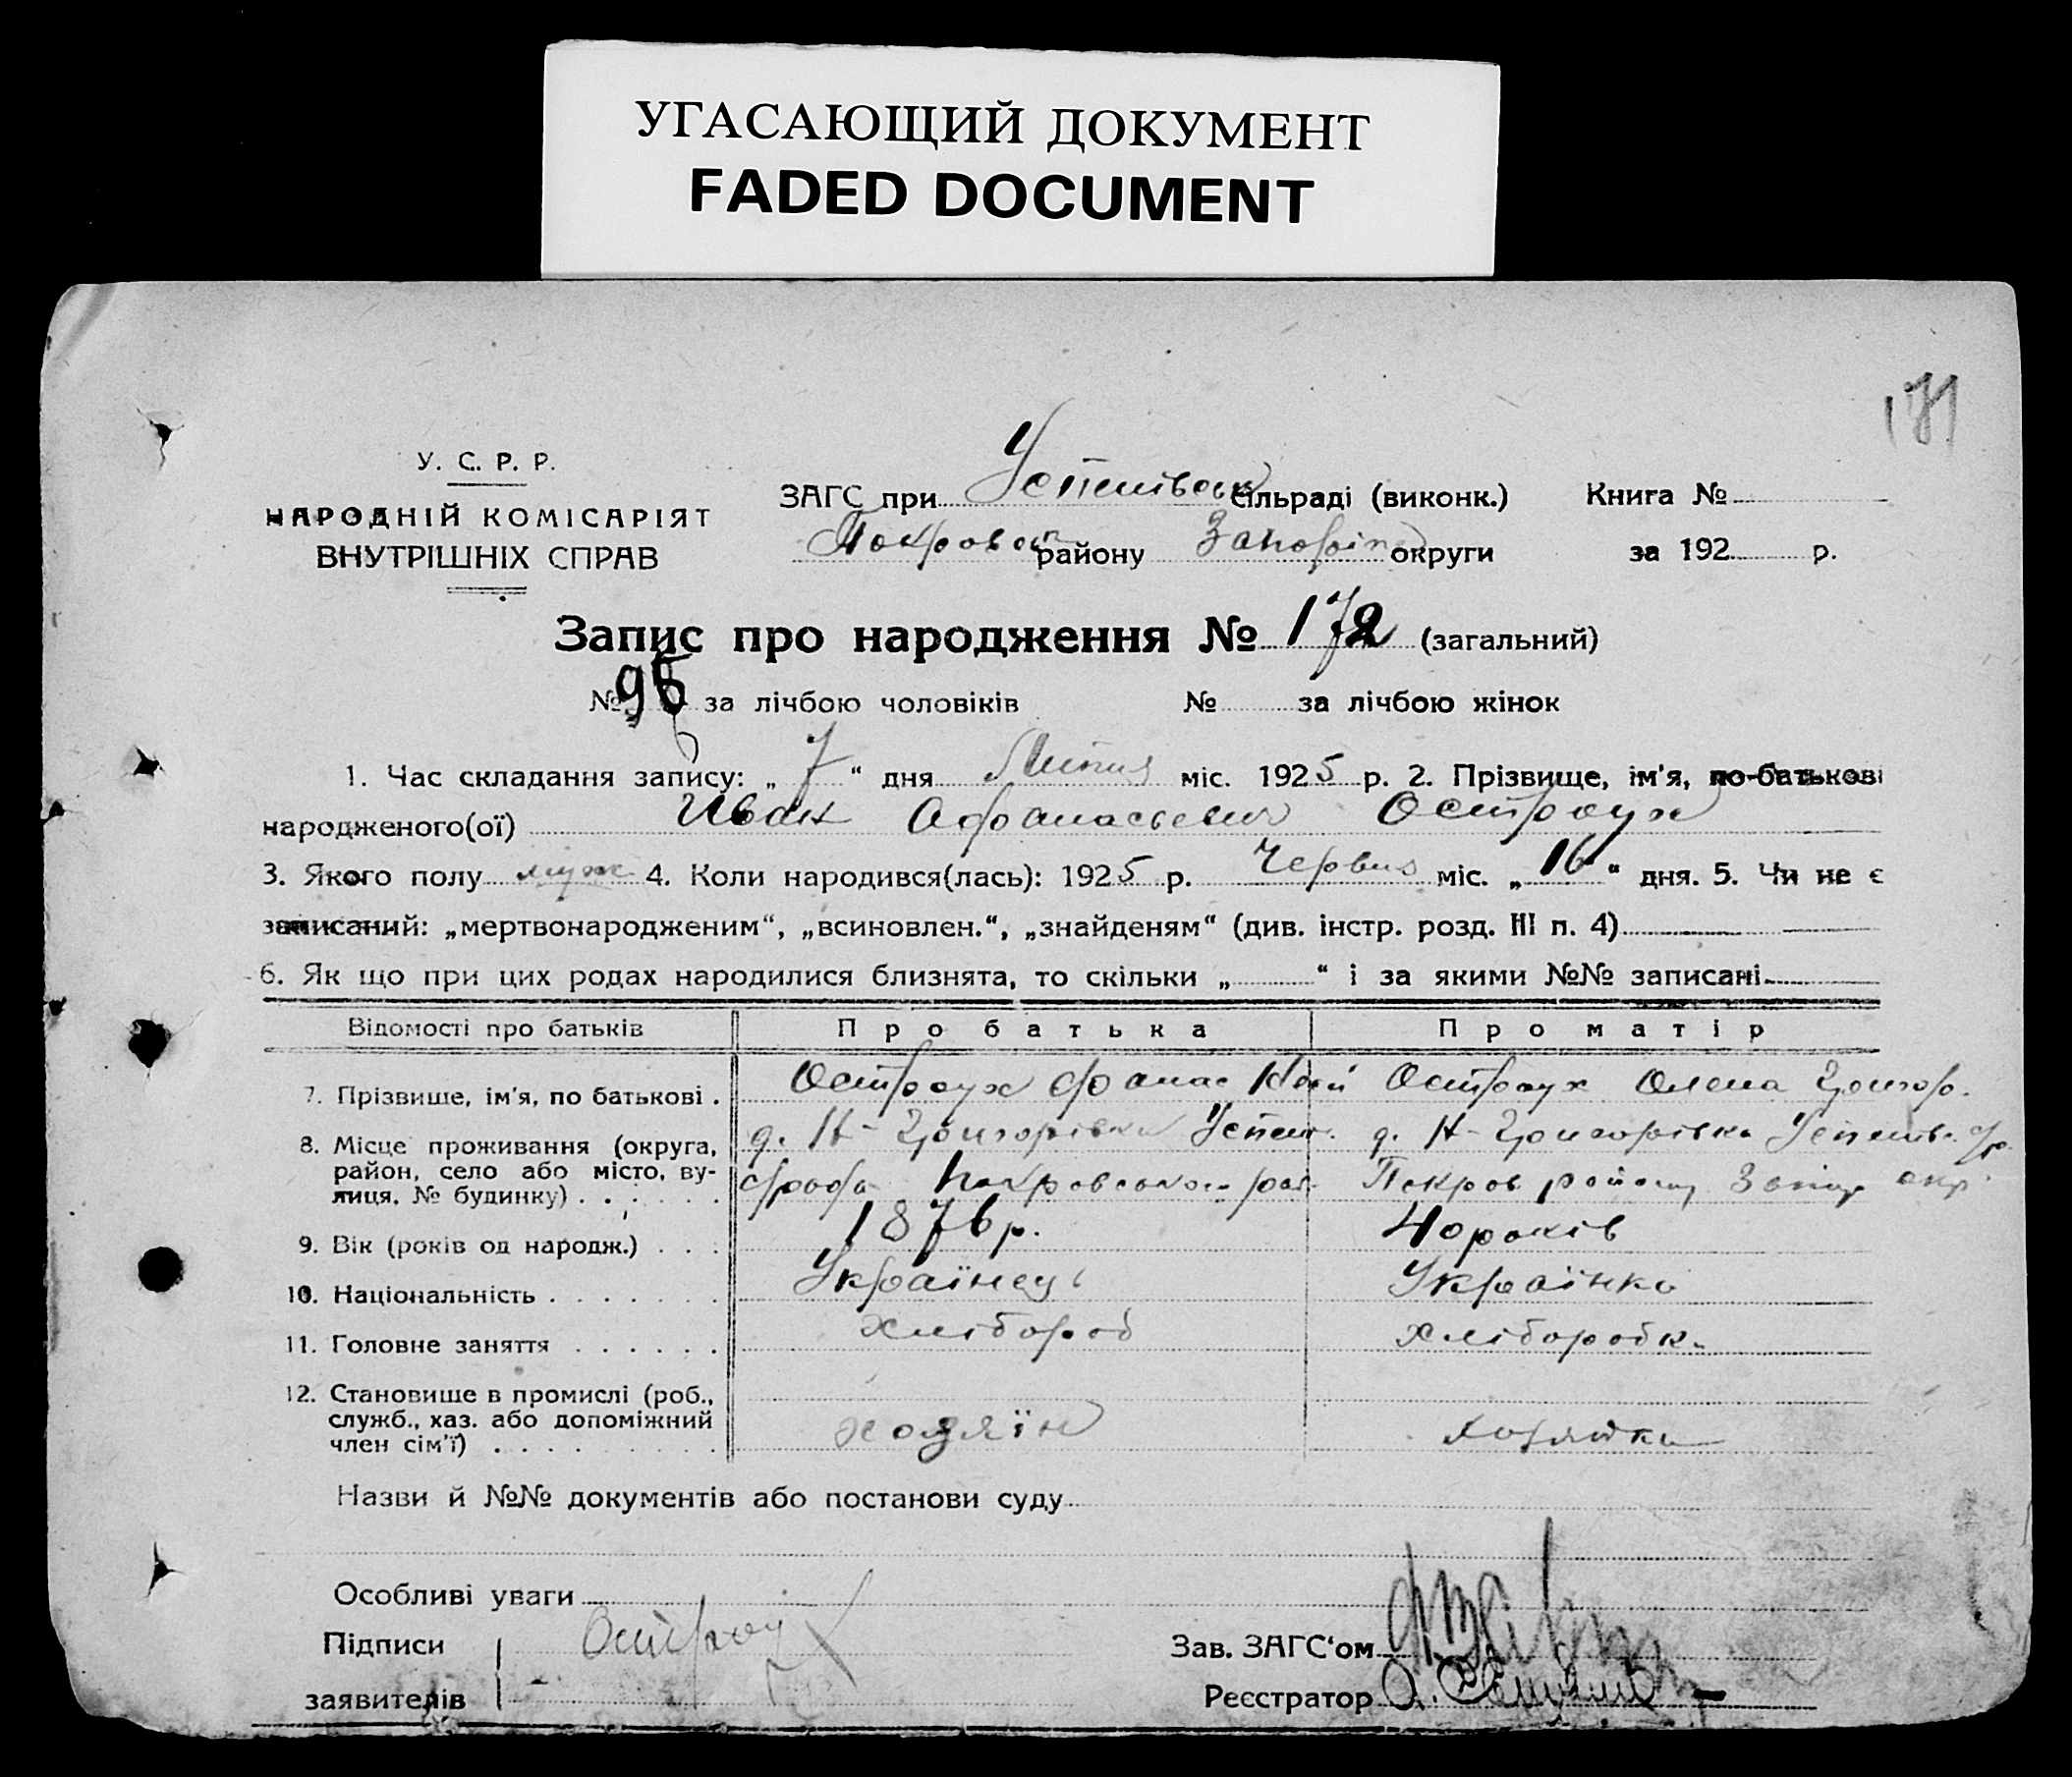 УГАСАЮЩИЙ ДОКУМЕНТ
FADED DOCUMENT
171
У. С. Р. Р.
НАРОДНІЙ КОМІСАРІЯТ
ВНУТРІШНІХ СПРАВ
ЗАГС при Успенівськ сільраді (виконк.) Книга №
Покровськ району Запоріз округи за 192 р.
Запис про народження № 172 (загальний)
№ 95 за лічбою чоловіків № за лічбою жінок
1. Час складання запису: „ 7 “ дня Липня міс. 1925 р. 2. Прізвище, ім'я, по-батькові
народженого(ої) Иван Афанасьевич Остроух
3. Якого полу муж 4. Коли народився(лась): 1925 р. Червня міс. „ 16 “ дня. 5. Чи не є
записаний: „мертвонародженим“, „всиновлен.“, „знайденям“ (див. інстр. розд. III п. 4)
6. Як що при цих родах народилися близнята, то скільки „ “ і за якими №№ записані
Відомості про батьків Про батька Про матір
7. Прізвище, ім'я, по батькові . Остроух Фанас Остроух Олена Григор.
8. Місце проживання (округа, д. Н-Григорівка Успен. д. Н-Григорівка Успенів.
район, село або місто, ву- Покровського рай. Покров району Запор окр.
лиця, № будинку)
9. Вік (років од народж.) . . . 1876 р. 40 років
10. Національність . . . . . . . Українець Українка
11. Головне заняття . . . . . . Хлібороб Хліборобка
12. Становище в промислі (роб.,
служб., хаз. або допоміжний хозяїн хозяйка
член сім'ї) . . . . . . . .
Назви й №№ документів або постанови суду
Особливі уваги
Підписи Остроух
Зав. ЗАГС'ом
заявителів
Реєстратор